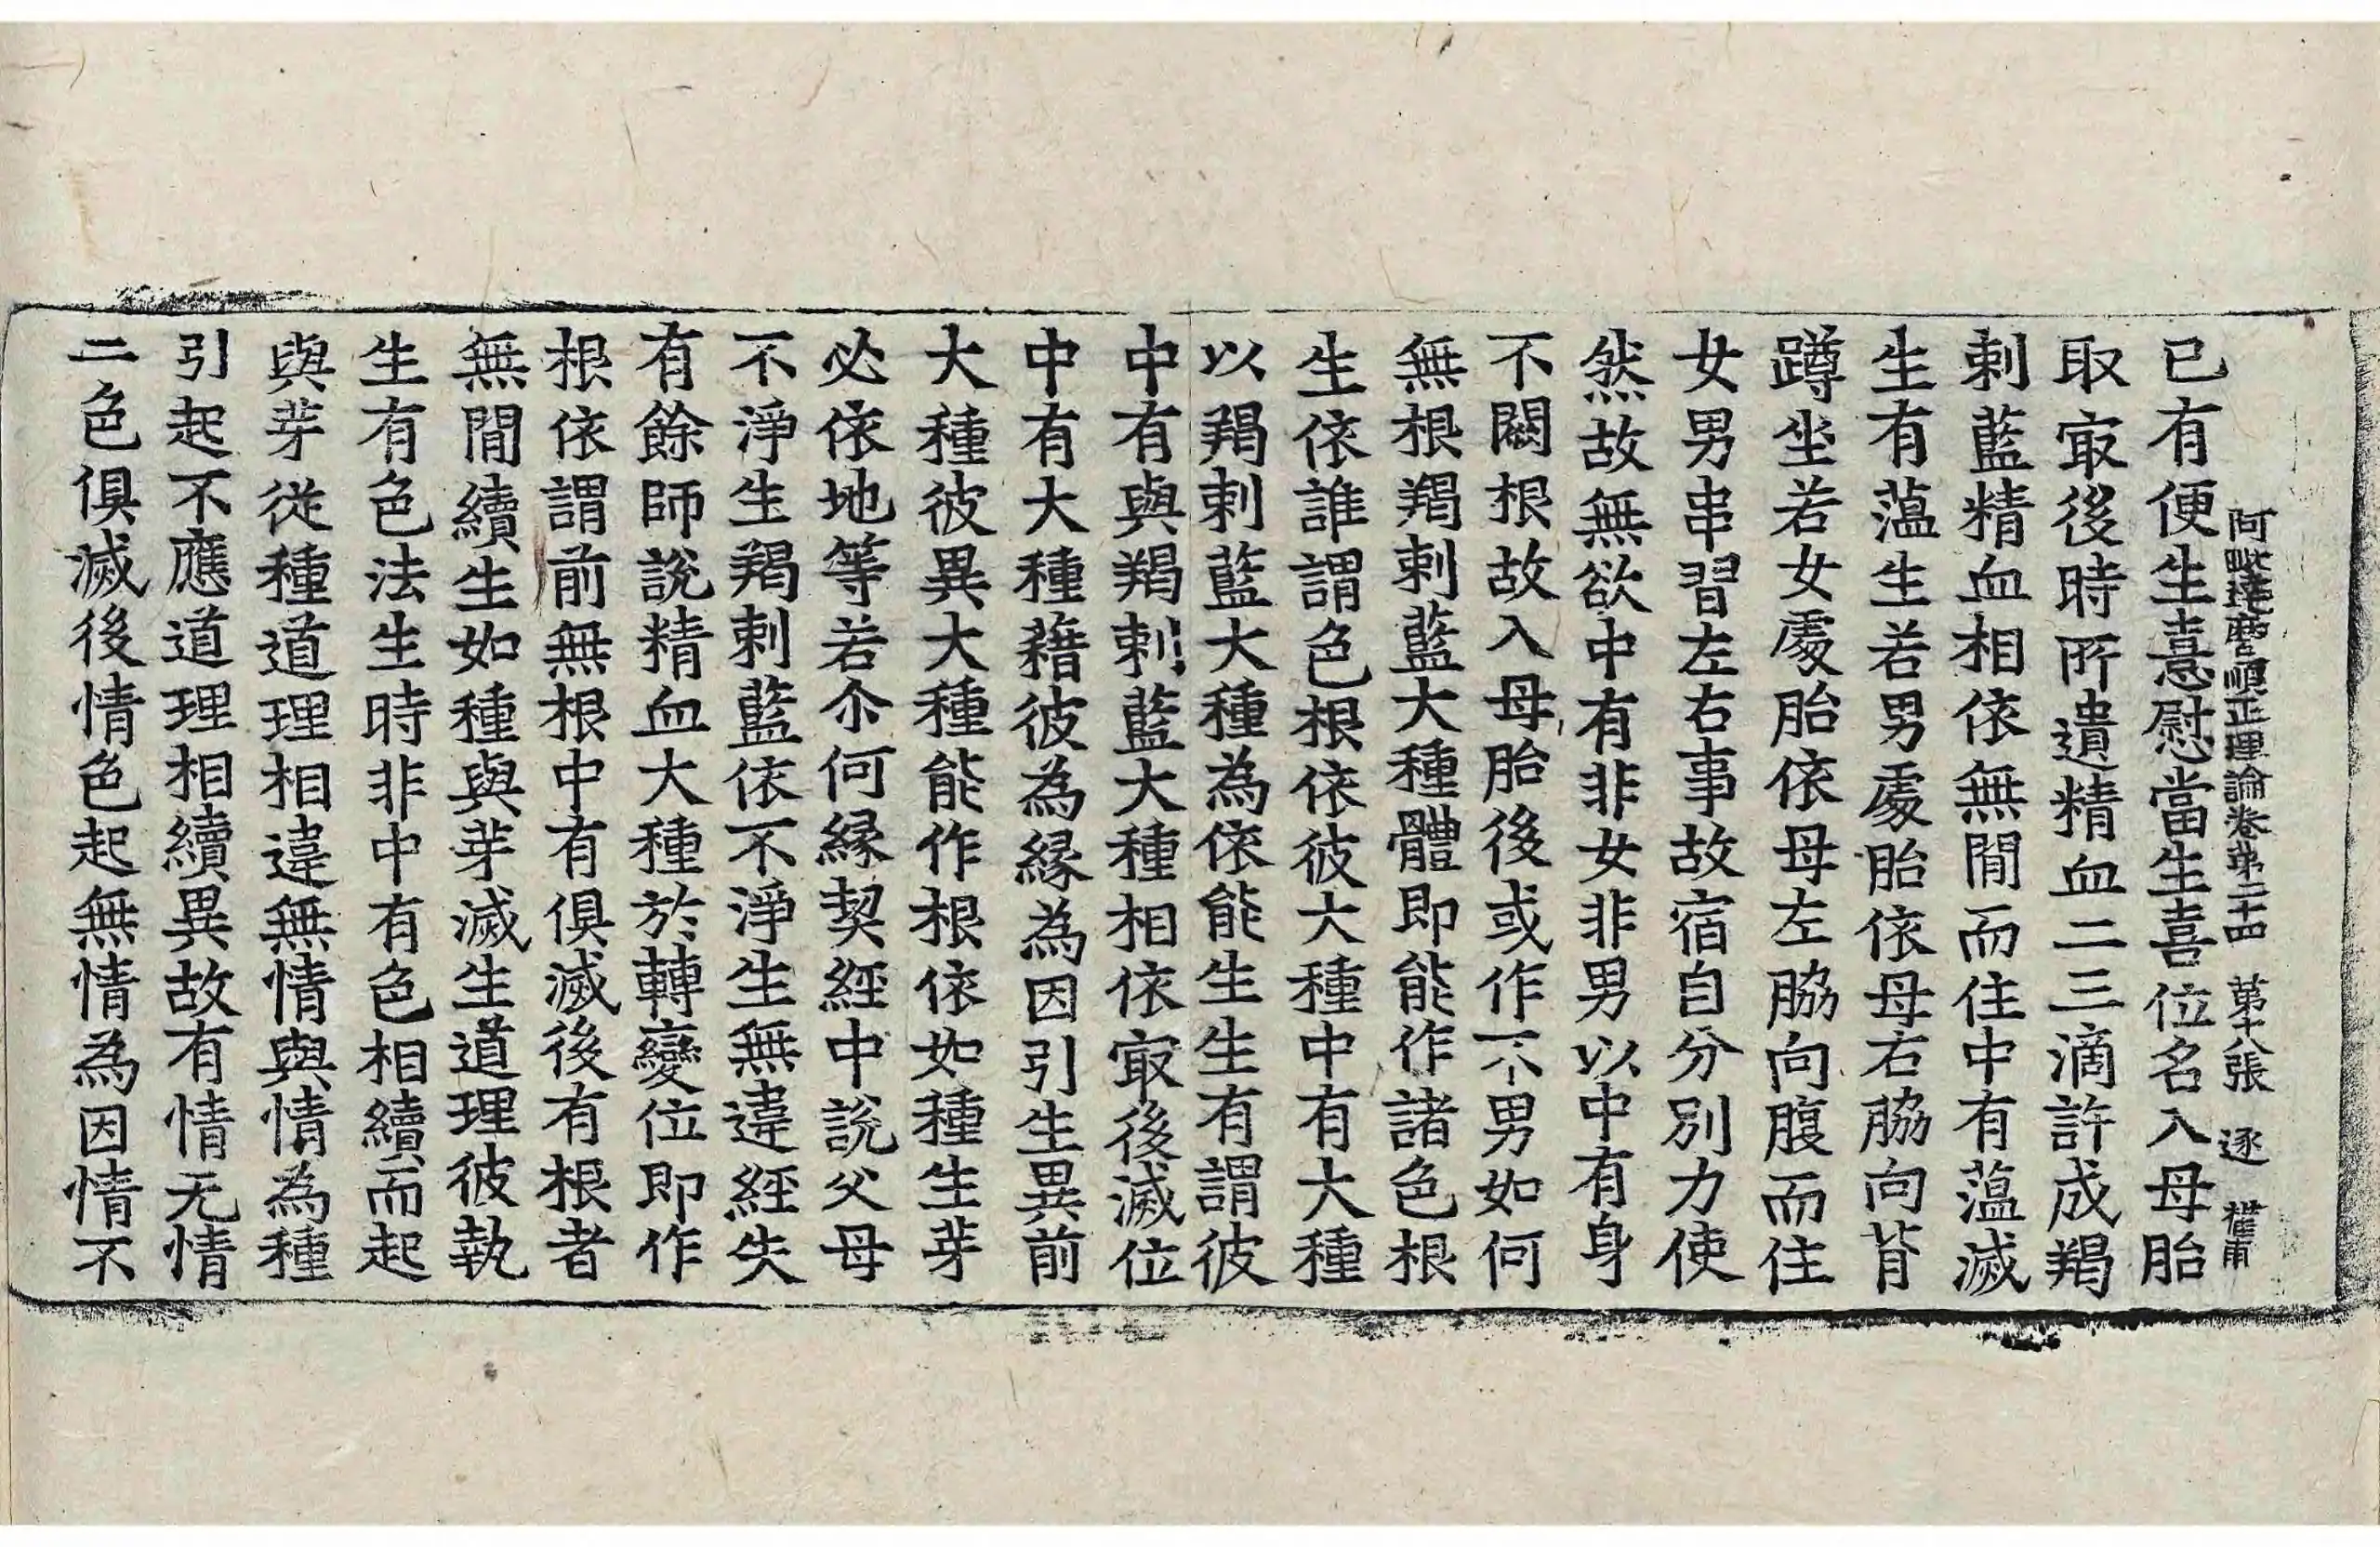 阿毗達磨順正理論卷第二十四 第十八張 逐
已有便生憙慰當生喜位名入母胎
取冣後時所遺精血二三滴許成羯
剌藍精血相依無閒而住中有薀滅
生有薀生若男處胎依母右脇向背
蹲坐若女處胎依母左脇向腹而住
女男串習左右事故宿自分別力使
然故無欲中有非女非男以中有身
不闕根故入母胎後或作不男如何
無根羯剌藍大種體即能作諸色根
生依誰謂色根依彼大種中有大種
以羯剌藍大種為依能生生有謂彼
中有與羯剌藍大種相依冣後滅位
中有大種藉彼為緣為因引生異前
大種彼異大種能作根依如種生芽
必依地等若尒何緣契經中說父母
不淨生羯剌藍依不淨生無違經失
有餘師說精血大種於轉變位即作
根依謂前無根中有俱滅後有根者
無閒續生如種與芽滅生道理彼執
生有色法生時非中有色相續而起
與芽從種道理相違無情與情為種
引起不應道理相續異故有情无情
二色俱滅後情色起無情為因情不